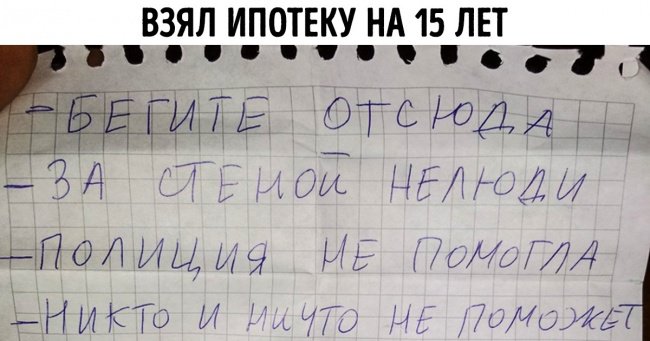 ВЗЯЛ ИПОТЕКУ НА 15 ЛЕТ
- БЕГИТЕ ОТСЮДА
- ЗА СТЕНОЙ НЕЛЮДИ
- ПОЛИЦИЯ НЕ ПОМОГЛА
- НИКТО И НИЧТО НЕ ПОМОЖЕТ